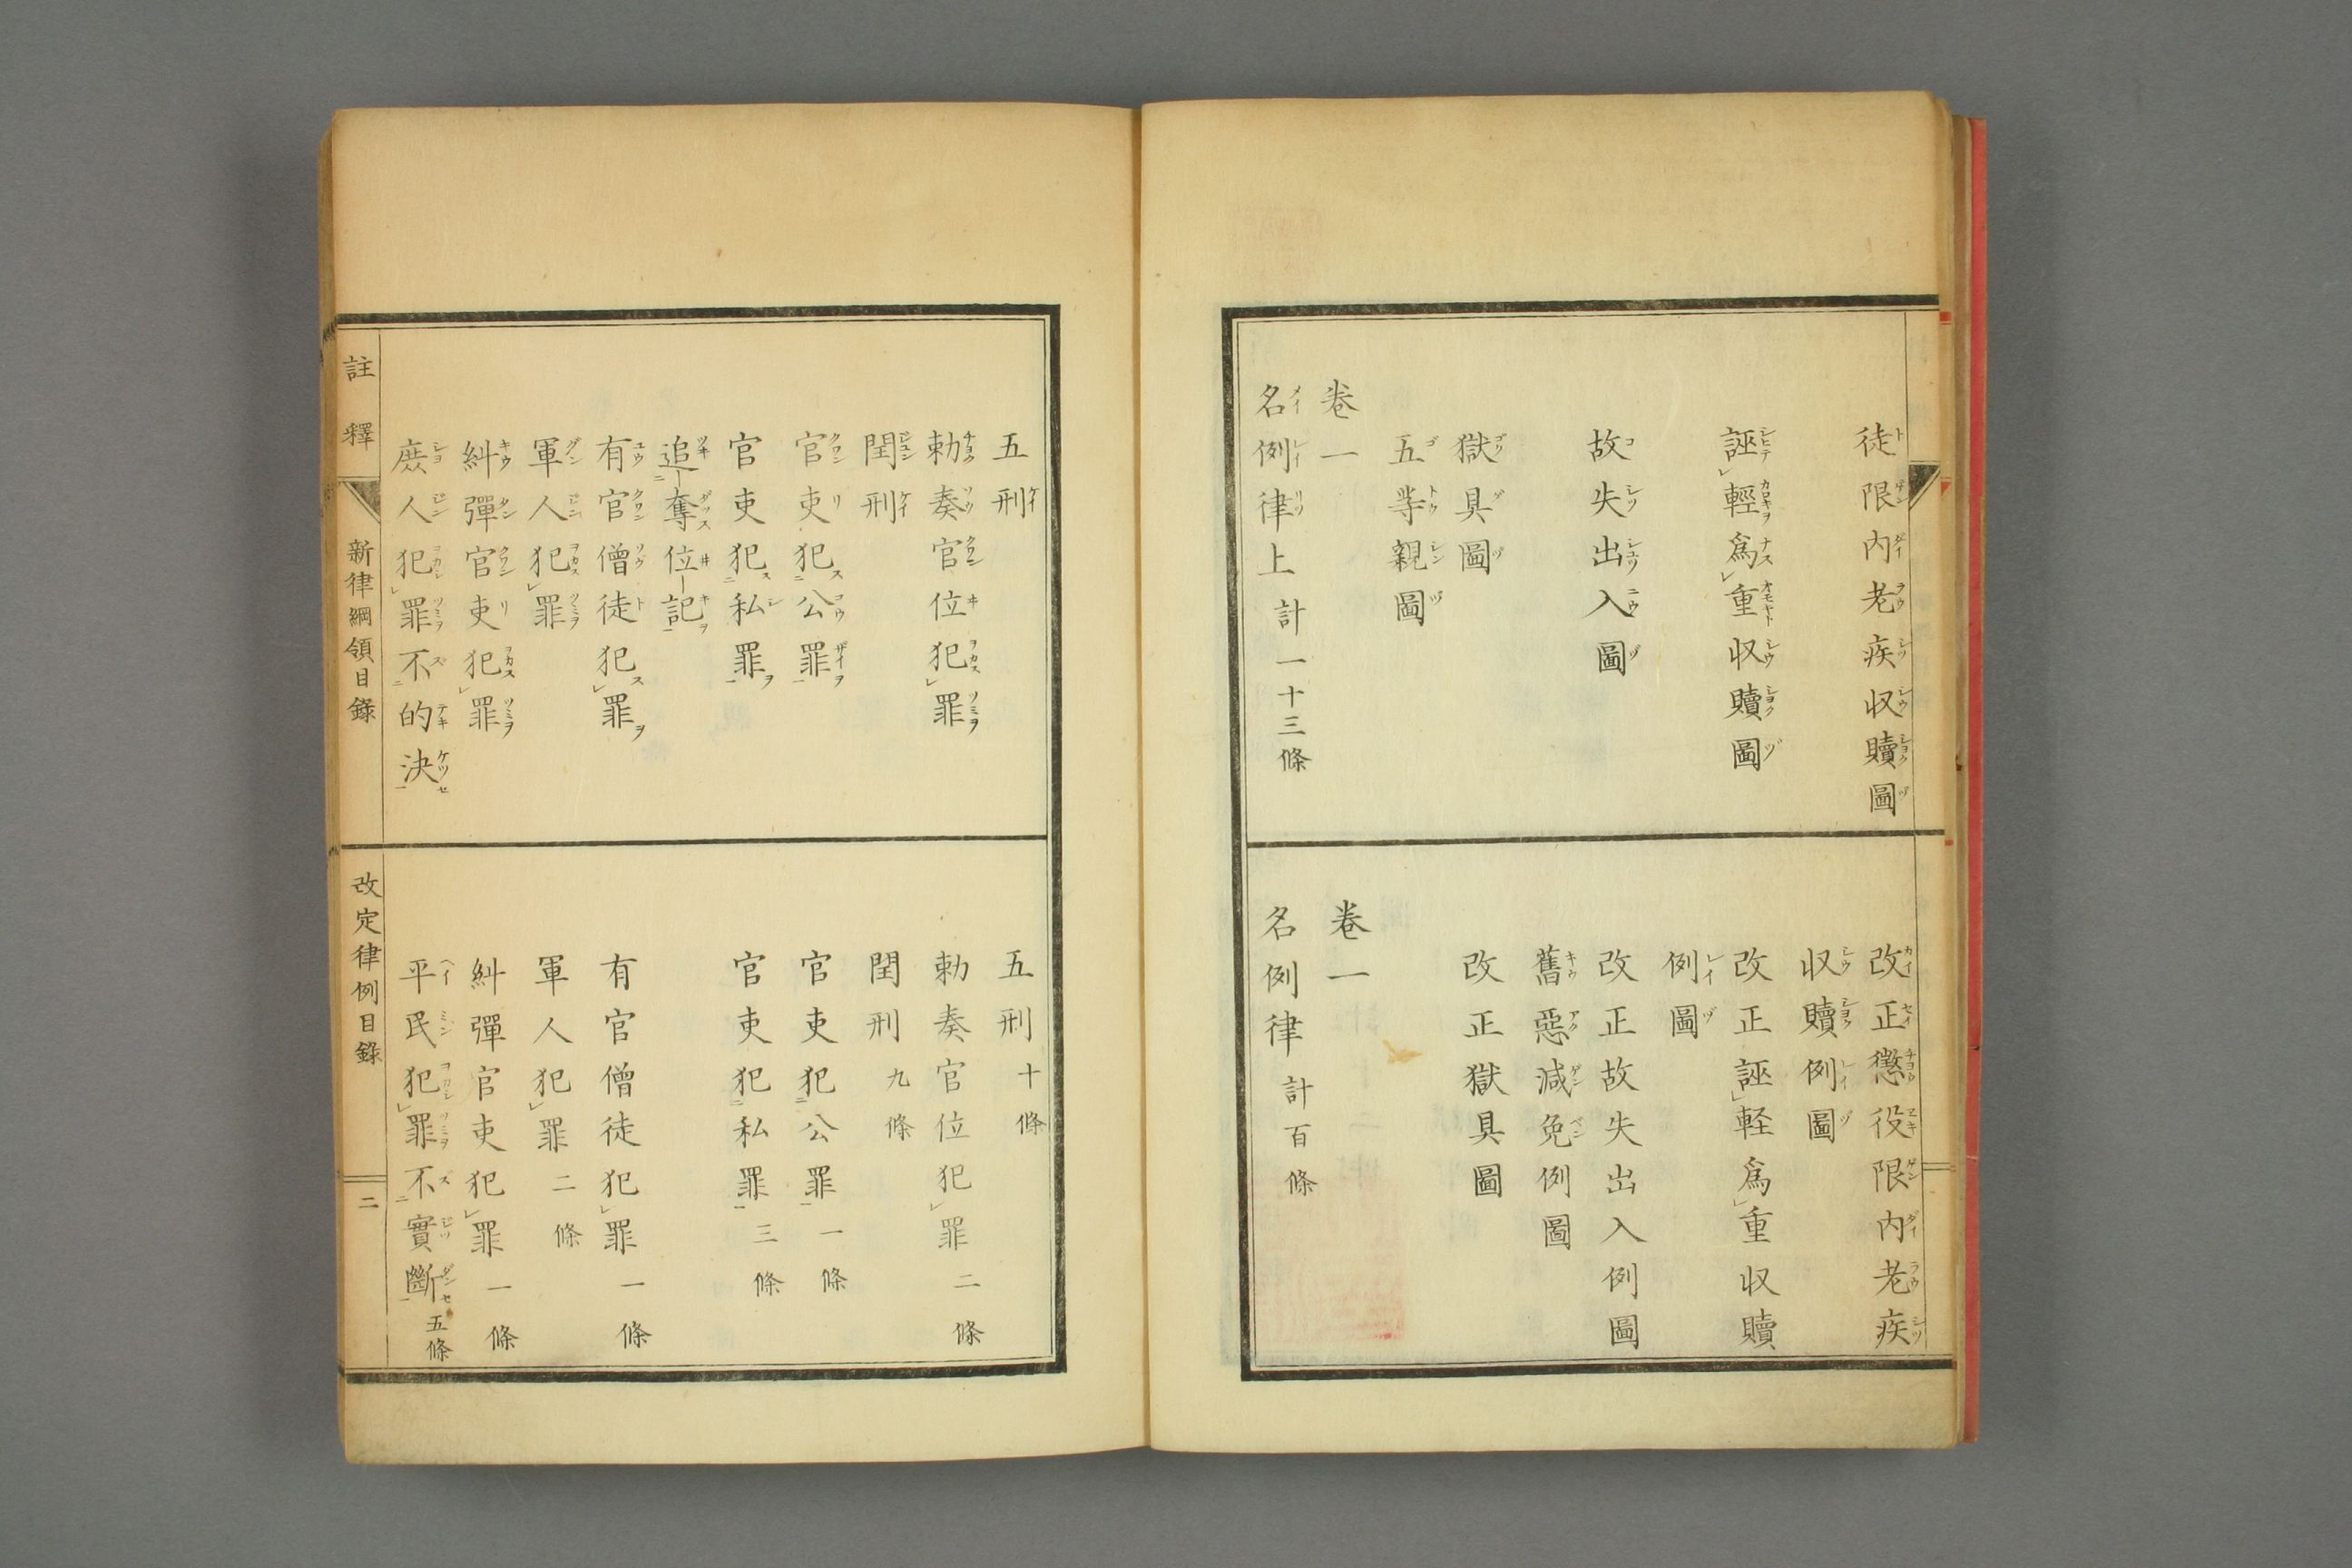 徒限内老疾収贖圖
誣輕爲重収贖圖
故失出入圖
獄具圖
五等親圖
卷一
名例律上 計一十三條
改正懲役限内老疾
収贖例圖
改正誣軽爲重収贖
例圖
改正故失出入例圖
舊惡減免例圖
改正獄具圖
卷一
名例律 計百條
五刑
勅奏官位犯罪
閏刑
官吏犯公罪
官吏犯私罪
追奪位記
有官僧徒犯罪
軍人犯罪
糾彈官吏犯罪
庶人犯罪不的決
五刑 十條
勅奏官位犯罪 二條
閏刑 九條
官吏犯公罪 一條
官吏犯私罪 三條
有官僧徒犯罪 一條
軍人犯罪 二條
糾彈官吏犯罪 一條
平民犯罪不實斷 五條
註釋 新律綱領目錄
改定律例目錄 二